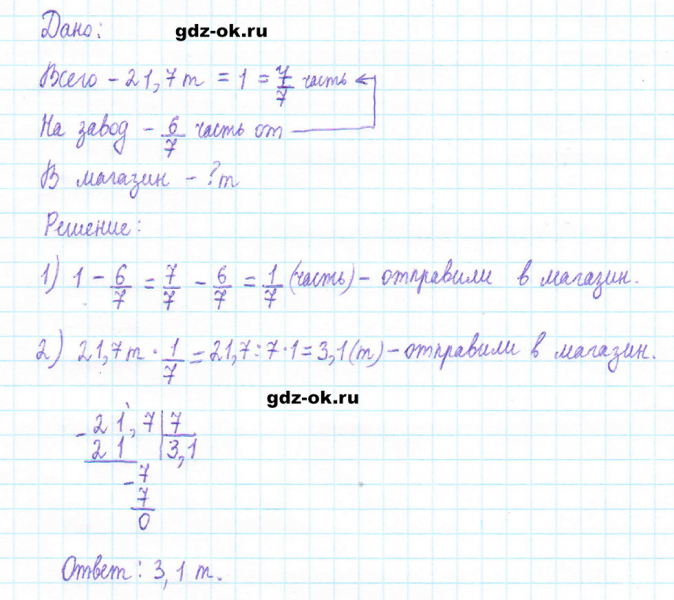 Дано:
gdz-ok.ru
Всего - 21,7 т = 1 = 7/7 часть
На завод - 6/7 часть от
В магазин - ? т
Решение:
1) 1 - 6/7 = 7/7 - 6/7 = 1/7 (часть) - отправили в магазин.
2) 21,7 т · 1/7 = 21,7 : 7 · 1 = 3,1 (т) - отправили в магазин.
gdz-ok.ru
- 21,7 | 7
21 | 3,1
- 7
7
0
Ответ: 3,1 т.